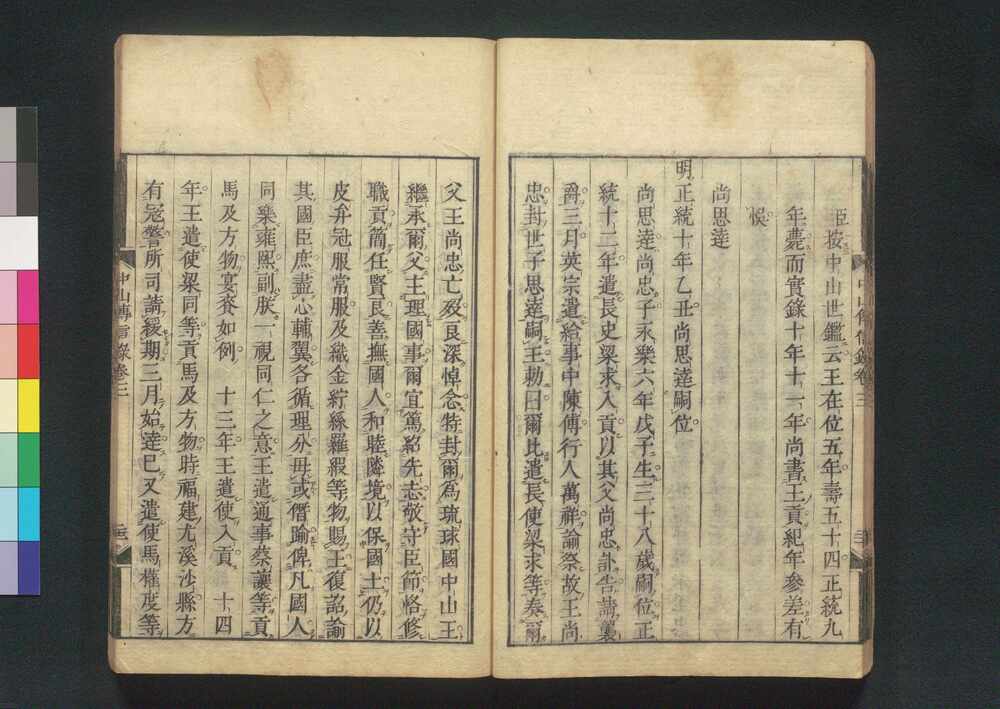 臣按中山世鑑云王在位五年壽五十四正統九
年薨而實錄十年十一年尚書王貢紀年參差有
悞
尚思達
明正統十年乙丑尚思達嗣位
尚思達尚忠子永樂六年戊子生三十八歲嗣位正
統十二年遣長史梁求入貢以其父尚忠訃告請襲
爵三月英宗遣給事中陳傅行人萬祥諭祭故王尚
忠封世子思達嗣王勅曰爾比遣長使梁求等奏爾
中山傳信錄卷三
父王尚忠亡歿良深悼念特封爾為琉球國中山王
繼承爾父主理國事爾宜篤紹先志敬守臣節恪修
職貢簡任賢良善撫國人和睦隣境以保國土仍以
皮弁冠服常服及織金紵絲羅緞等物賜王復詔諭
其國臣庶盡心輔翼各循理分毋或僭踰俾凡國人
同樂雍熙副朕一視同仁之意王遣通事蔡讓等貢
馬及方物宴賚如例 十三年王遣使入貢 十四
年王遣使梁同等貢馬及方物時福建尤溪沙縣方
有寇警所司請緩期三月始達已又遣使馬權度等
中山傳信錄卷三